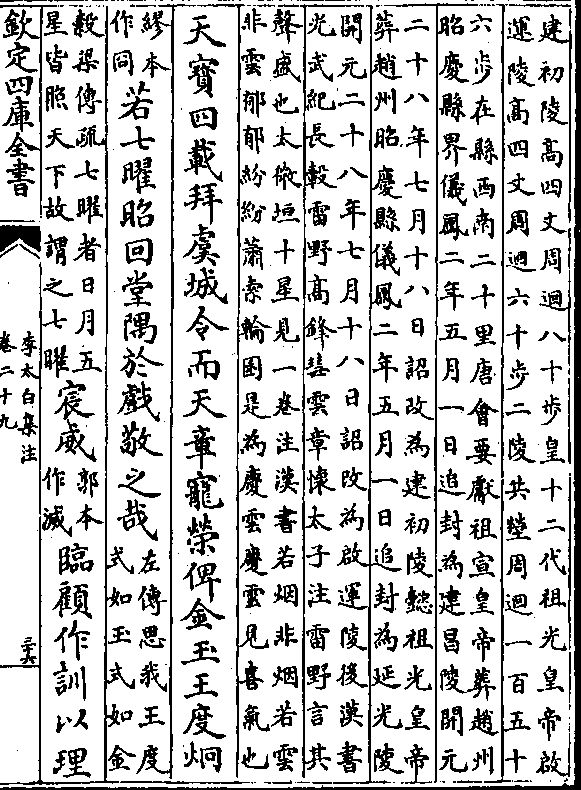 建初陵高四丈周迴八十步皇十二代祖光皇帝啟
運陵高四丈周迴六十步二陵共塋周迴一百五十
六步在縣西南二十里唐會要獻祖宣皇帝葬趙州
昭慶縣界儀鳳二年五月一日追封為建昌陵開元
二十八年七月十八日詔改為建初陵懿祖光皇帝
葬趙州昭慶縣儀鳳二年五月一日追封為延光陵
開元二十八年七月十八日詔改為啟運陵後漢書
光武紀長轂雷野高鋒彗雲章懷太子注雷野言其
聲盛也太微垣十星見一卷注漢書若烟非烟若雲
非雲郁郁紛紛蕭索輪囷是為慶雲慶雲見喜氣也
天寳四載拜虞城令而天章寵榮俾金玉王度炯
繆本作同若七曜昭回堂隅於戲敬之哉左傳思我王度式如玉式如金
榖梁傳疏七曜者日月五星皆照天下故謂之七曜宸威郭本作滅臨顧作訓以理
欽定四庫全書
李太白集注
卷二十九
三六